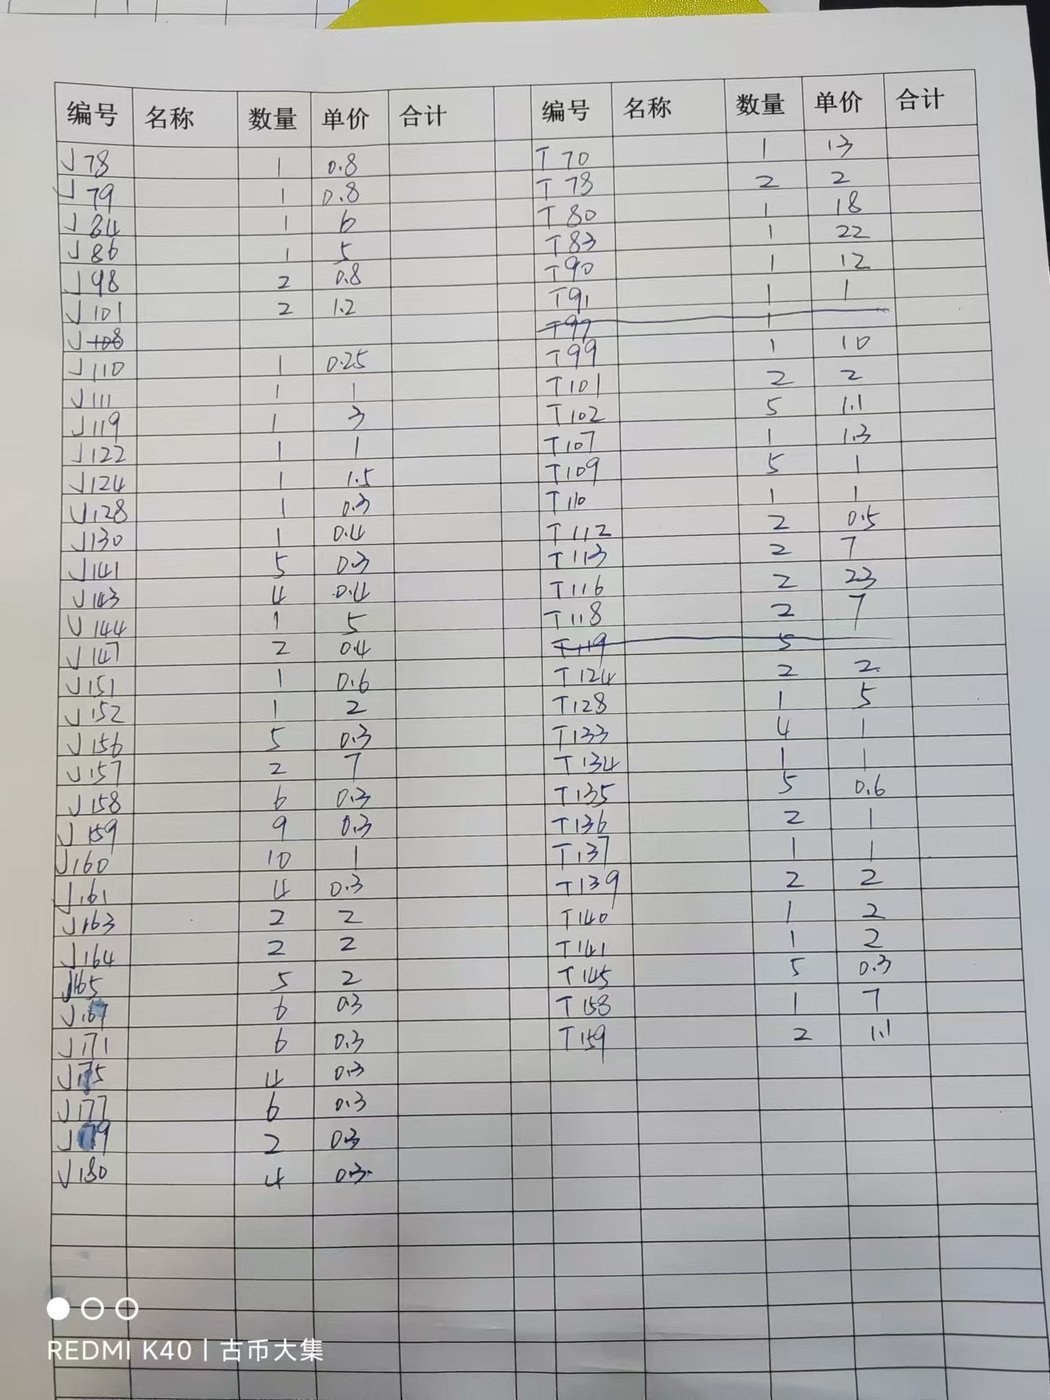 编号 名称 数量 单价 合计 编号 名称 数量 单价 合计
J78 1 0.8 T70 1 13
J79 1 0.8 T78 2 2
J84 1 6 T80 1 18
J86 1 5 T83 1 22
J98 2 0.8 T90 1 12
J101 2 1.2 T91 1 1
J108 T97 1
J110 1 0.25 T99 1 10
J111 1 1 T101 2 2
J119 1 3 T102 5 1.1
J122 1 1 T107 1 1.3
J124 1 1.5 T109 5 1
J128 1 0.3 T110 1 1
J130 1 0.4 T112 2 0.5
J141 5 0.3 T113 2 7
J143 4 0.4 T116 2 23
J144 1 5 T118 2 7
J147 2 0.4 T119 5
J151 1 0.6 T124 2 2
J152 1 2 T128 1 5
J156 5 0.3 T133 4 1
J157 2 7 T134 1 1
J158 6 0.3 T135 5 0.6
J159 9 0.3 T136 2 1
J160 10 1 T137 1 1
J161 4 0.3 T139 2 2
J163 2 2 T140 1 2
J164 2 2 T141 1 2
J165 5 2 T145 5 0.3
J167 6 0.3 T158 1 7
J171 6 0.3 T159 2 1.1
J175 4 0.3
J177 6 0.3
J179 2 0.3
J180 4 0.3
REDMI K40 | 古币大集